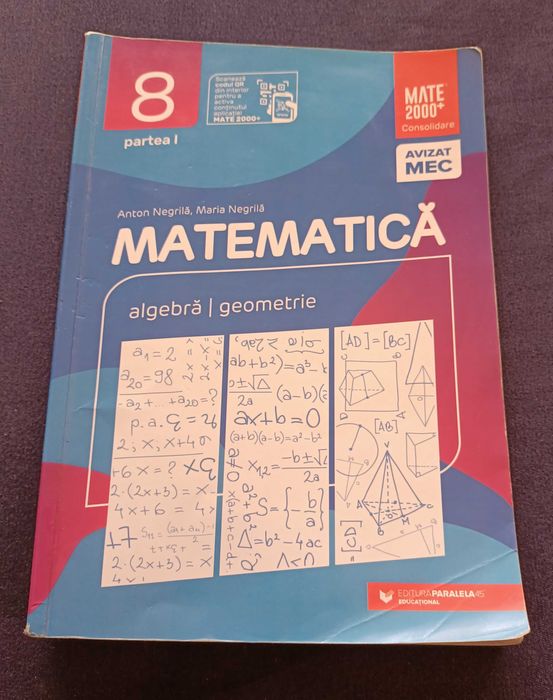 8
partea I
Scanează
codul QR
din interior
pentru a
activa
conținutul
aplicației
MATE 2000+
MATE
2000+
Consolidare
AVIZAT
MEC
Anton Negrilă, Maria Negrilă
MATEMATICĂ
algebră | geometrie
a₁ = 2
a₂₀ = 98
-a₂ + ... + a₂₀ = ?
p.a.
2; x, x+4
+6x = ?
2·(2x+3) = x-
4x + 6 = 4x
+7
2·(2x+3) = x
ab+b²) = a³-
2a
(a-b)(
ax+b=0
(a+b)(a-b)=a²-b²
a≠0
x₁,₂ = -b±√Δ
2a
S={-b/a}
Δ=b²-4ac
[AD]=[BC]
[AB]
V
A
B
M
C
EDITURA PARALELA 45
EDUCATIONAL